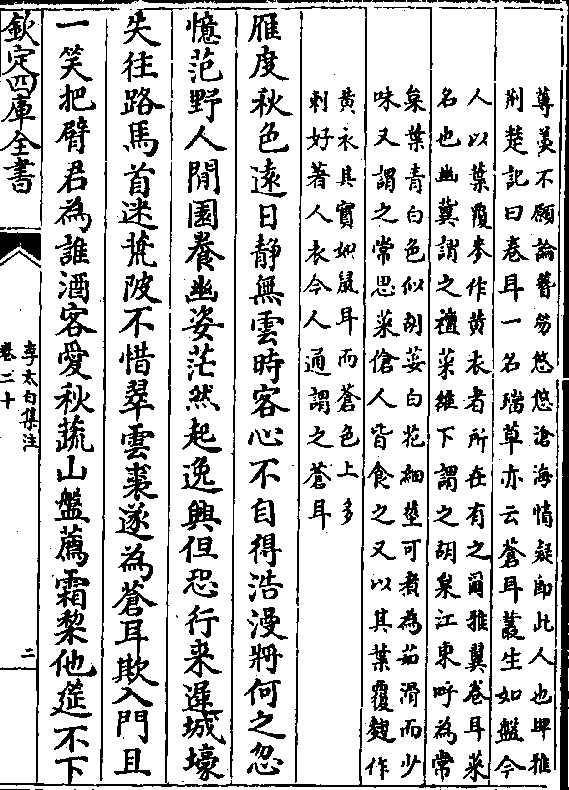 蓴羹不願論簪笏悠悠滄海情疑即此人也埤雅
荆楚記曰卷耳一名璫草亦云蒼耳叢生如盤今
人以葉覆麥作黄衣者所在有之爾雅翼卷耳菜
名也幽冀謂之襢菜雒下謂之胡枲江東呼為常
枲葉青白色似胡荽白花細莖可煮為茹滑而少
味又謂之常思菜傖人皆食之又以其葉覆麴作
黄衣其實如鼠耳而蒼色上多
刺好著人衣今人通謂之蒼耳
雁度秋色遠日静無雲時客心不自得浩漫將何之忽
憶范野人閒園養幽姿茫然起逸興但恐行来遲城壕
失往路馬首迷荒陂不惜翠雲裘遂為蒼耳欺入門且
一笑把臂君為誰酒客愛秋蔬山盤薦霜梨他筵不下
欽定四庫全書
李太白集注
卷二十
二